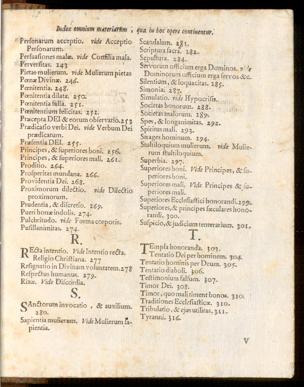 Index omnium materiarum, quæ in hoc opere continentur.
Personarum acceptio. vide Acceptio
Personarum.
Persuasiones malæ. vide Consilia mala.
Perversitas. 243
Pietas mulierum. vide Mulierum pietas
Pœnæ Divinæ. 246.
Pœnitentia. 248.
Pœnitentia dilata. 250.
Pœnitentia falsa. 251.
Pœnitentium felicitas. 252.
Præcepta DEI & eorum observatio. 253
Prædicatio verbi Dei. vide Verbum Dei
prædicatum.
Præsentia DEI. 255.
Principes, & superiores boni. 256.
Principes, & superiores mali. 261.
Proditio. 264.
Prosperitas mundana. 266.
Providentia Dei. 268.
Proximorum dilectio. vide Dilectio
proximorum.
Prudentia, & discretio. 269.
Pueri bonæ indolis. 274.
Pulchritudo. vide Forma corporis.
Pusillanimitas. 274.
R.
Recta intentio. Vide Intentio recta.
Religio Christiana. 277
Resignatio in Divinam voluntatem. 278
Respectus humanus. 279.
Rixæ. Vide Discordia.
S.
Sanctorum invocatio, & auxilium.
280.
Sapientia mulierum. Vide Mulierum sa-
pientia.
Scandalum. 281.
Scriptura sacra. 282.
Sepultura. 284.
Servorum officium erga Dominos. &
Dominorum officium erga servos &c.
Silentium, & loquacitas. 285.
Simonia. 287.
Simulatio. vide Hypocrisis.
Societas bonorum. 288.
Societas malorum. 289.
Spes, & longanimitas. 292.
Spiritus mali. 293.
Strages hominum. 294.
Stultiloquium mulierum. vide Mulie-
rum stultiloquium.
Superbia. 297.
Superiores boni. Vide Principes, & su-
periores boni.
Superiores mali. Vide Principes & su-
periores mali.
Superiores Ecclesiastici honorandi. 299.
Superiores, & principes sæculares hono-
randi. 300.
Suspicio, & judicium temerarium. 301.
T.
Templa honoranda. 303.
Tentatio Dei per hominem. 304.
Tentatio hominis per Deum. 305.
Tentatio diaboli. 306.
Testimonium falsum. 307.
Timor Dei. 308.
Timor, quo mali timent bonos. 310.
Traditiones Ecclesiasticæ. 310.
Tribulatio, & ejus utilitas. 311.
Tyranni. 316.
V